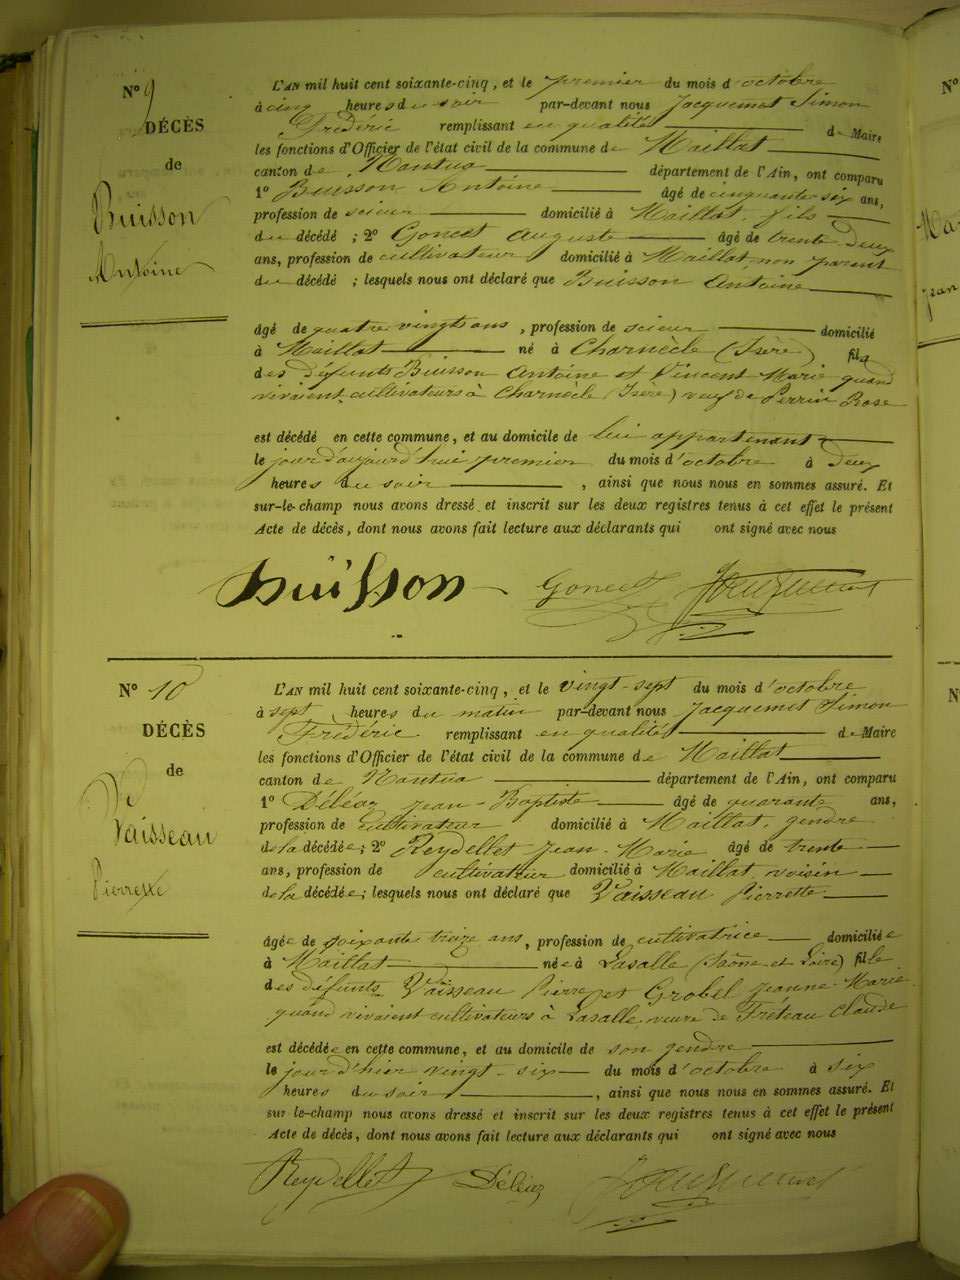 N° 9
DÉCÈS
de
Buisson
Antoine
L'AN mil huit cent soixante-cinq, et le premier du mois d'octobre
à cinq heures du soir par-devant nous Jacquemet Simon
Frédéric remplissant en qualité de Maire
les fonctions d'Officier de l'état civil de la commune de Maillat
canton de Nantua département de l'Ain, ont comparu
1° Buisson Antoine âgé de cinquante six ans,
profession de scieur domicilié à Maillat, fils
du décédé ; 2° Goncet Auguste âgé de trente deux
ans, profession de cultivateur domicilié à Maillat, non parent
du décédé ; lesquels nous ont déclaré que Buisson Antoine
âgé de quatre vingts ans, profession de scieur domicilié
à Maillat né à Charnècle (Isère) fils
des défunts Buisson Antoine et Vincent Marie quand
vivaient cultivateurs à Charnècle (Isère) veuf de Perrin Rose
est décédé en cette commune, et au domicile de lui appartenant
le jour d'aujourd'hui premier du mois d'octobre à deux
heures du soir, ainsi que nous nous en sommes assuré. Et
sur-le-champ nous avons dressé et inscrit sur les deux registres tenus à cet effet le présent
Acte de décès, dont nous avons fait lecture aux déclarants qui ont signé avec nous
Buisson Goncet Jacquemet
N° 10
DÉCÈS
de
Ve
Vaisseau
Pierrette
L'AN mil huit cent soixante-cinq, et le vingt-sept du mois d'octobre
à sept heures du matin par-devant nous Jacquemet Simon
Frédéric remplissant en qualité de Maire
les fonctions d'Officier de l'état civil de la commune de Maillat
canton de Nantua département de l'Ain, ont comparu
1° Déléaz Jean-Baptiste âgé de quarante ans,
profession de cultivateur domicilié à Maillat, gendre
de la décédée; 2° Reydellet Jean-Marie âgé de trente
ans, profession de cultivateur domicilié à Maillat, voisin
de la décédée; lesquels nous ont déclaré que Vaisseau Pierrette
âgée de soixante treize ans, profession de cultivatrice domiciliée
à Maillat née à Lasalle (Saône et Loire) fille
des défunts Vaisseau Pierre et Grobel Jeanne-Marie
quand vivaient cultivateurs à Lasalle, veuve de Fréteau Claude
est décédée en cette commune, et au domicile de son gendre
le jour d'hier vingt-six du mois d'octobre à six
heures du soir, ainsi que nous nous en sommes assuré. Et
sur le-champ nous avons dressé et inscrit sur les deux registres tenus à cet effet le présent
Acte de décès, dont nous avons fait lecture aux déclarants qui ont signé avec nous
Reydellet Déléaz Jacquemet